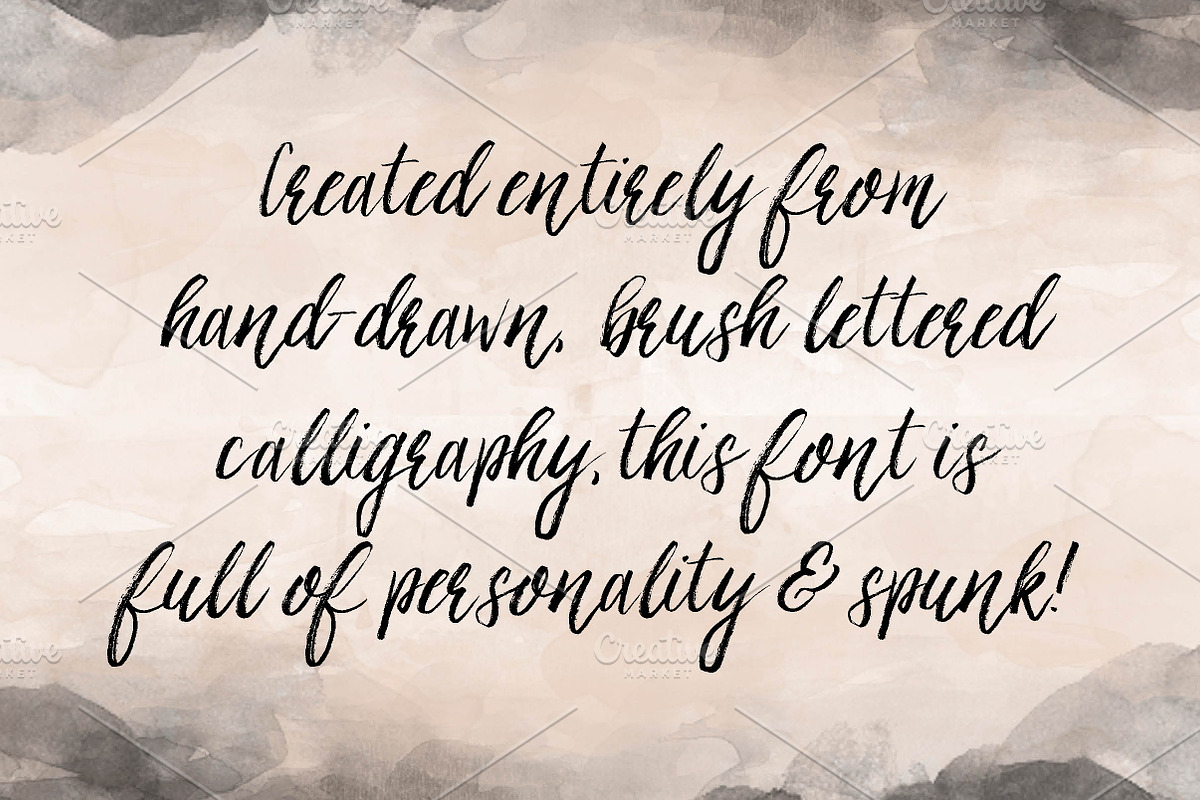 Created entirely from
hand-drawn, brush lettered
calligraphy, this font is
full of personality & spunk!
Creative MARKET